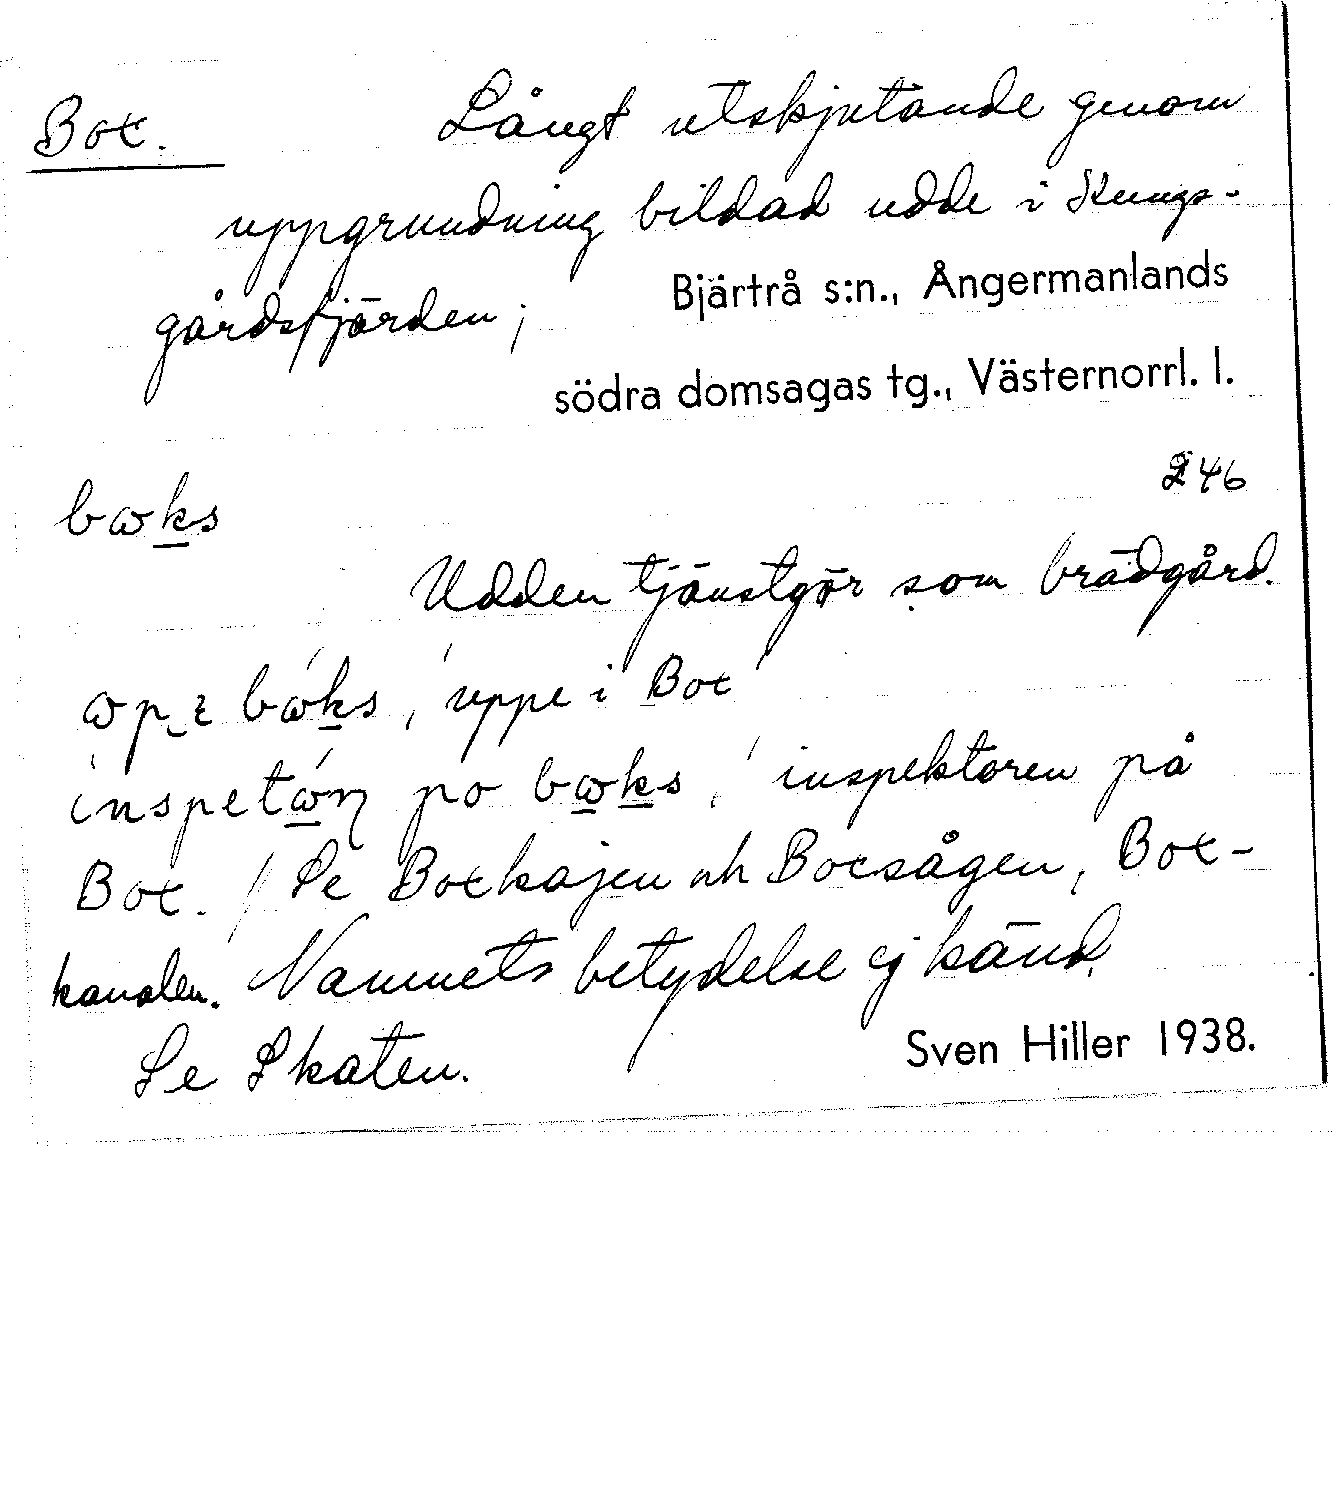 Box. Långt utskjutande genom
uppgrundning bildad udde i Kungs-
gårdsfjärden;
Bjärtrå s:n., Ångermanlands
södra domsagas tg., Västernorrl. l.
246
bωks
Udden tjänstgör som brädgård.
bωks, 'uppe i Box'
po bωks, 'inspektoren på
Box.' Se Boxkajen och Boxsågen, Box-
kanalen. Namnets betydelse ej känd.
Se Skaten.
Sven Hiller 1938.